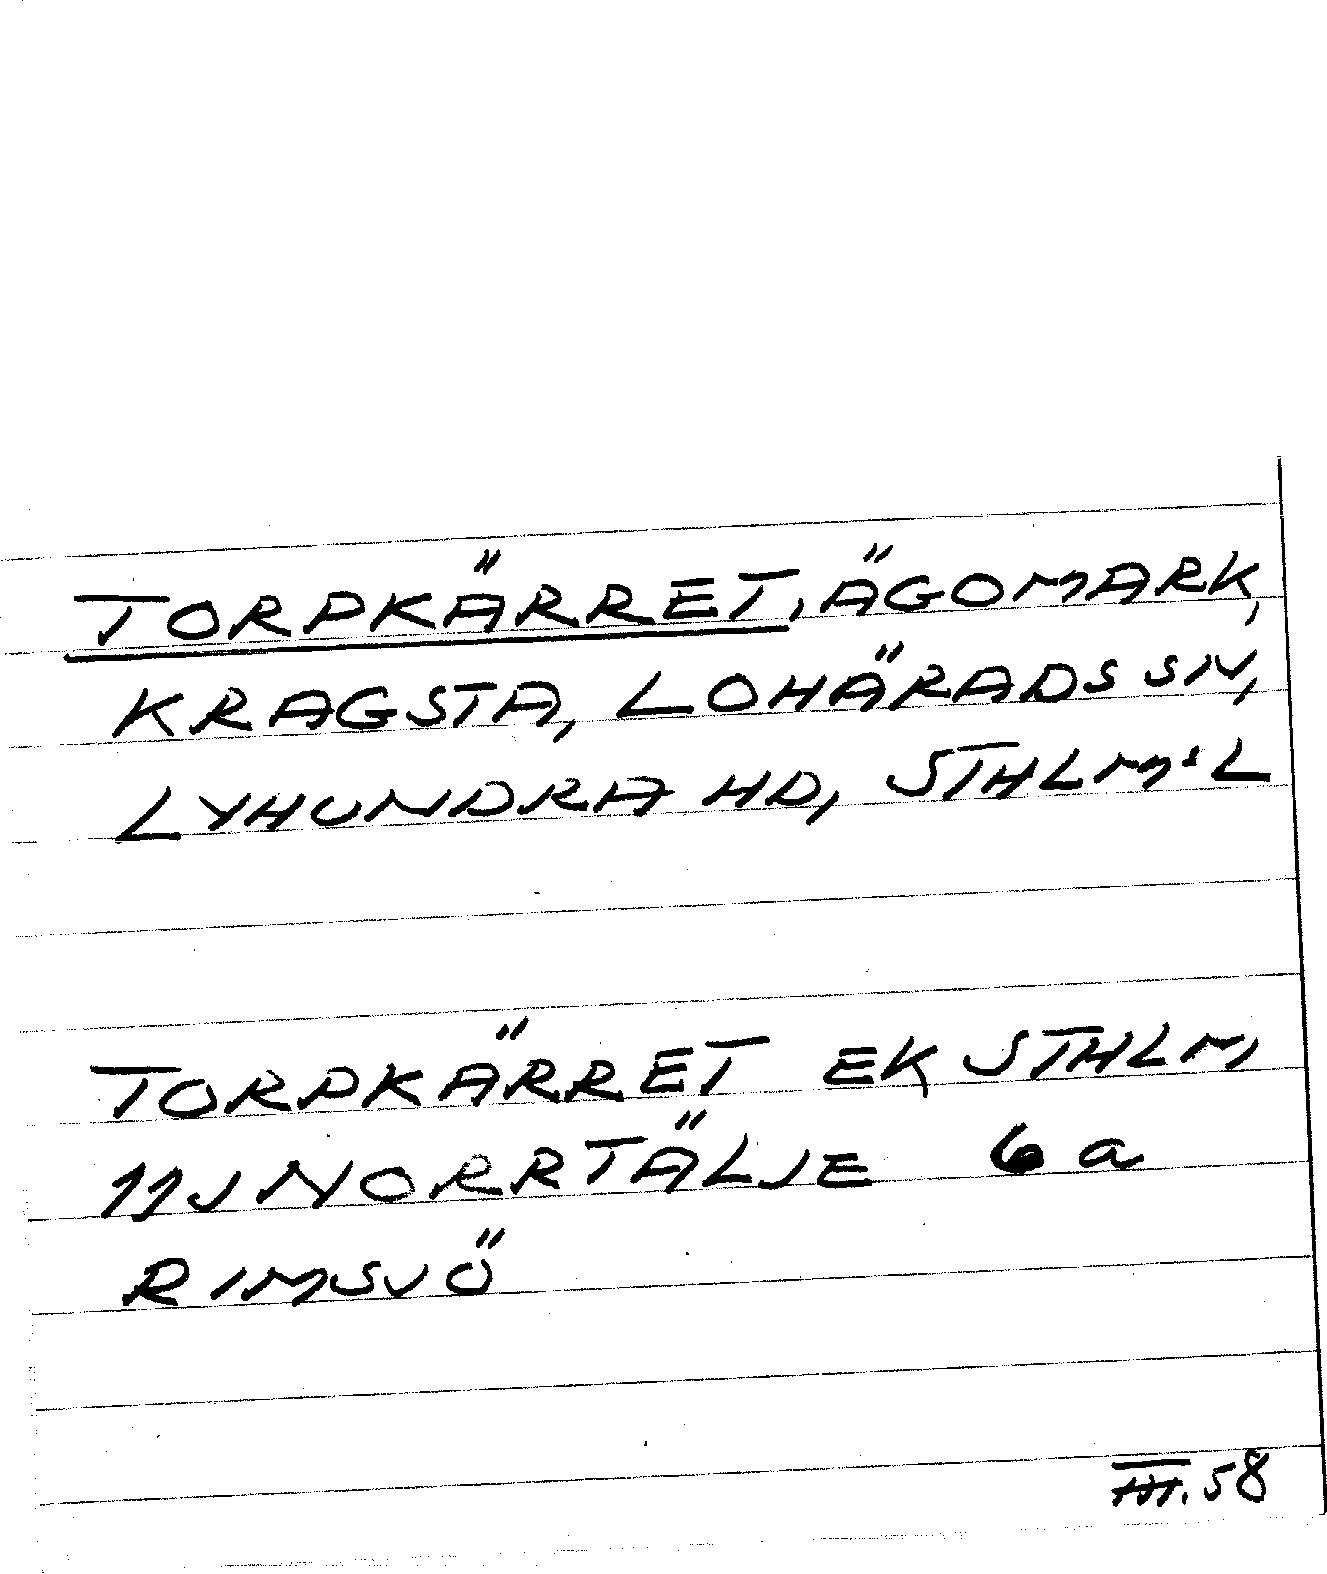 TORPKÄRRET, ÄGOMARK,
KRAGSTA, LOHÄRADS SN,
LYHUNDRA HD, STHLM'S L
TORPKÄRRET EK STHLM
11J NORRTÄLJE 6 a
RIMSJÖ
III. 58